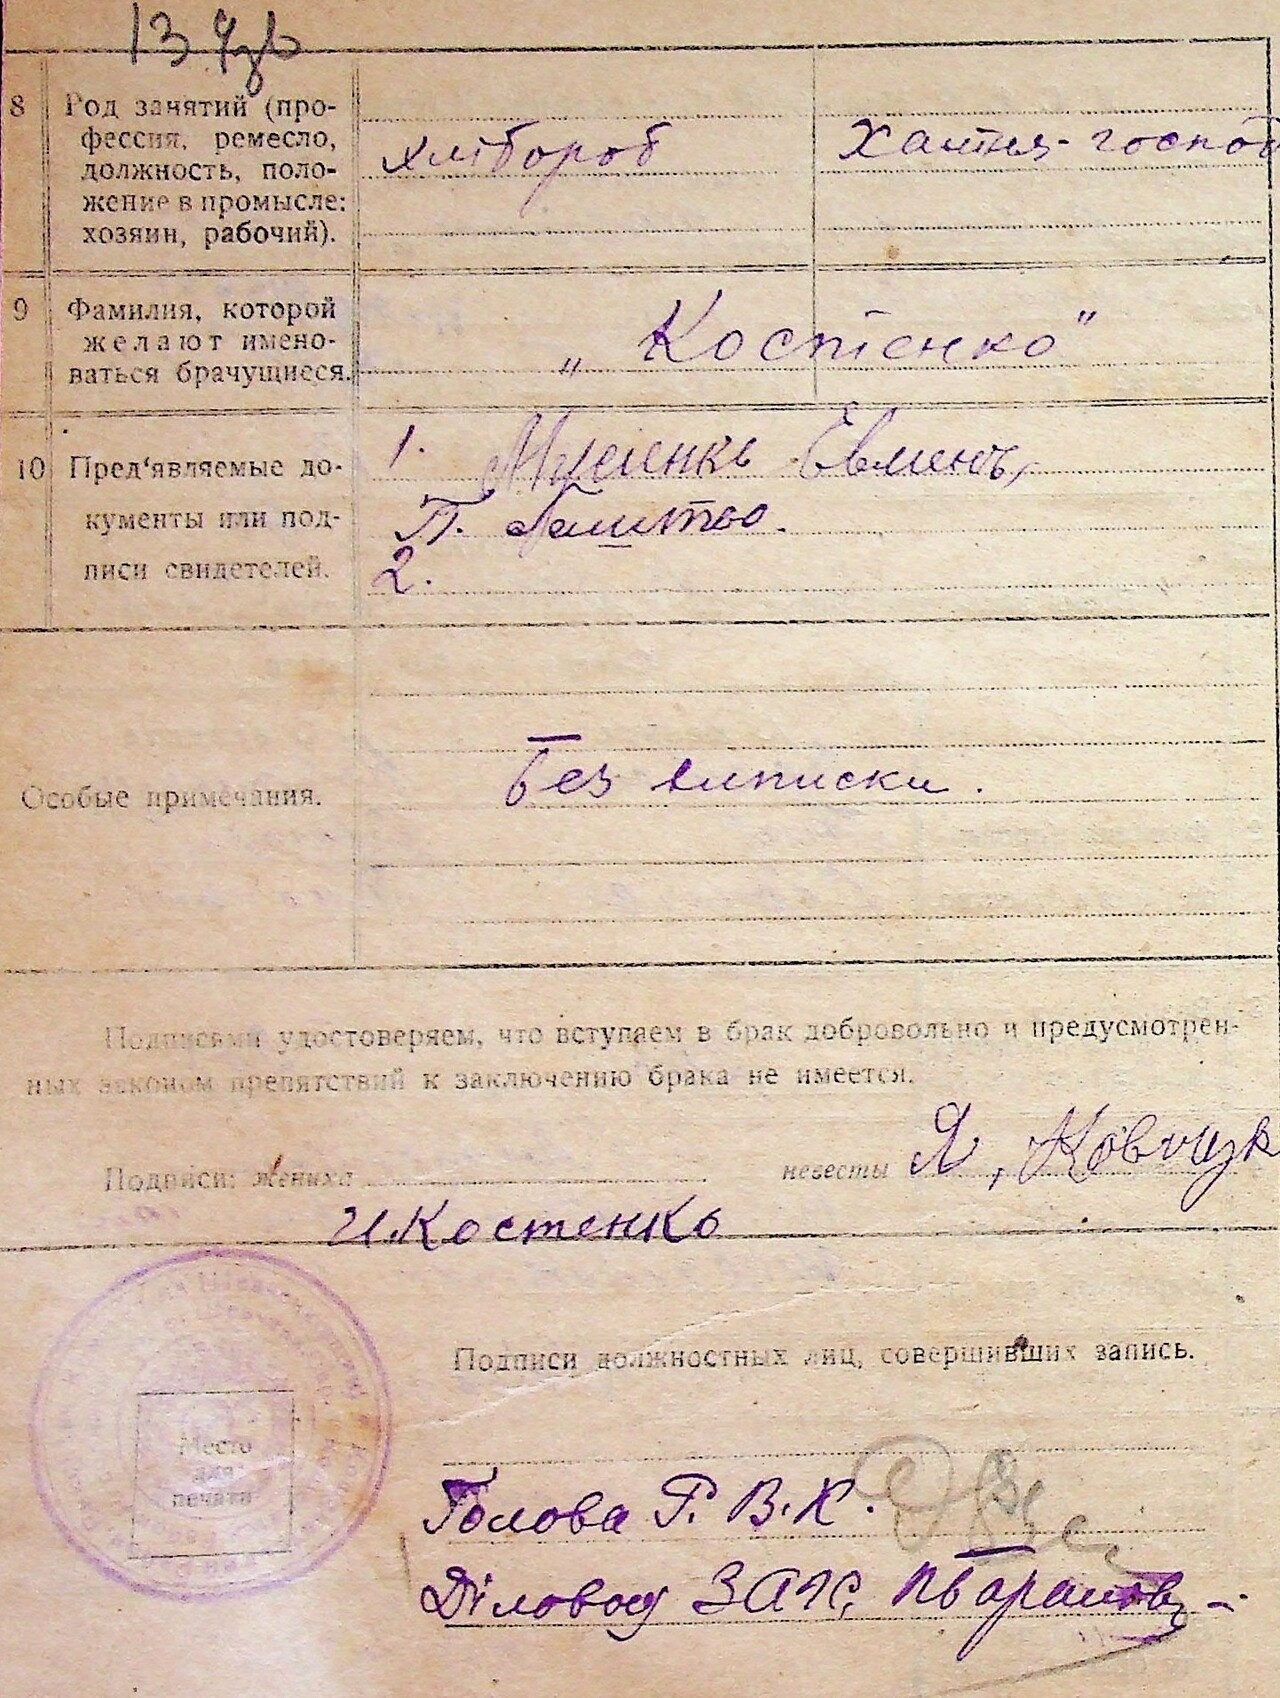 13
8 Род занятий (про-
фессия, ремесло,
должность, поло-
жение в промысле:
хозяин, рабочий).
хлібороб
Хатня-господ
9 Фамилия, которой
желают имено-
ваться брачущиеся.
„Костенко"
10 Пред'являемые до-
кументы или под-
писи свидетелей.
1.
П.
2.
Особые примечания.
Без выписки.
Подписями удостоверяем, что вступаем в брак добровольно и предусмотрен-
ных законом препятствий к заключению брака не имеется.
Подписи: жениха
невесты Я,
И. Костенко
Подписи должностных лиц, совершивших запись.
Место
для
печати
Голова Р. В. К.
Діловод ЗАГС,